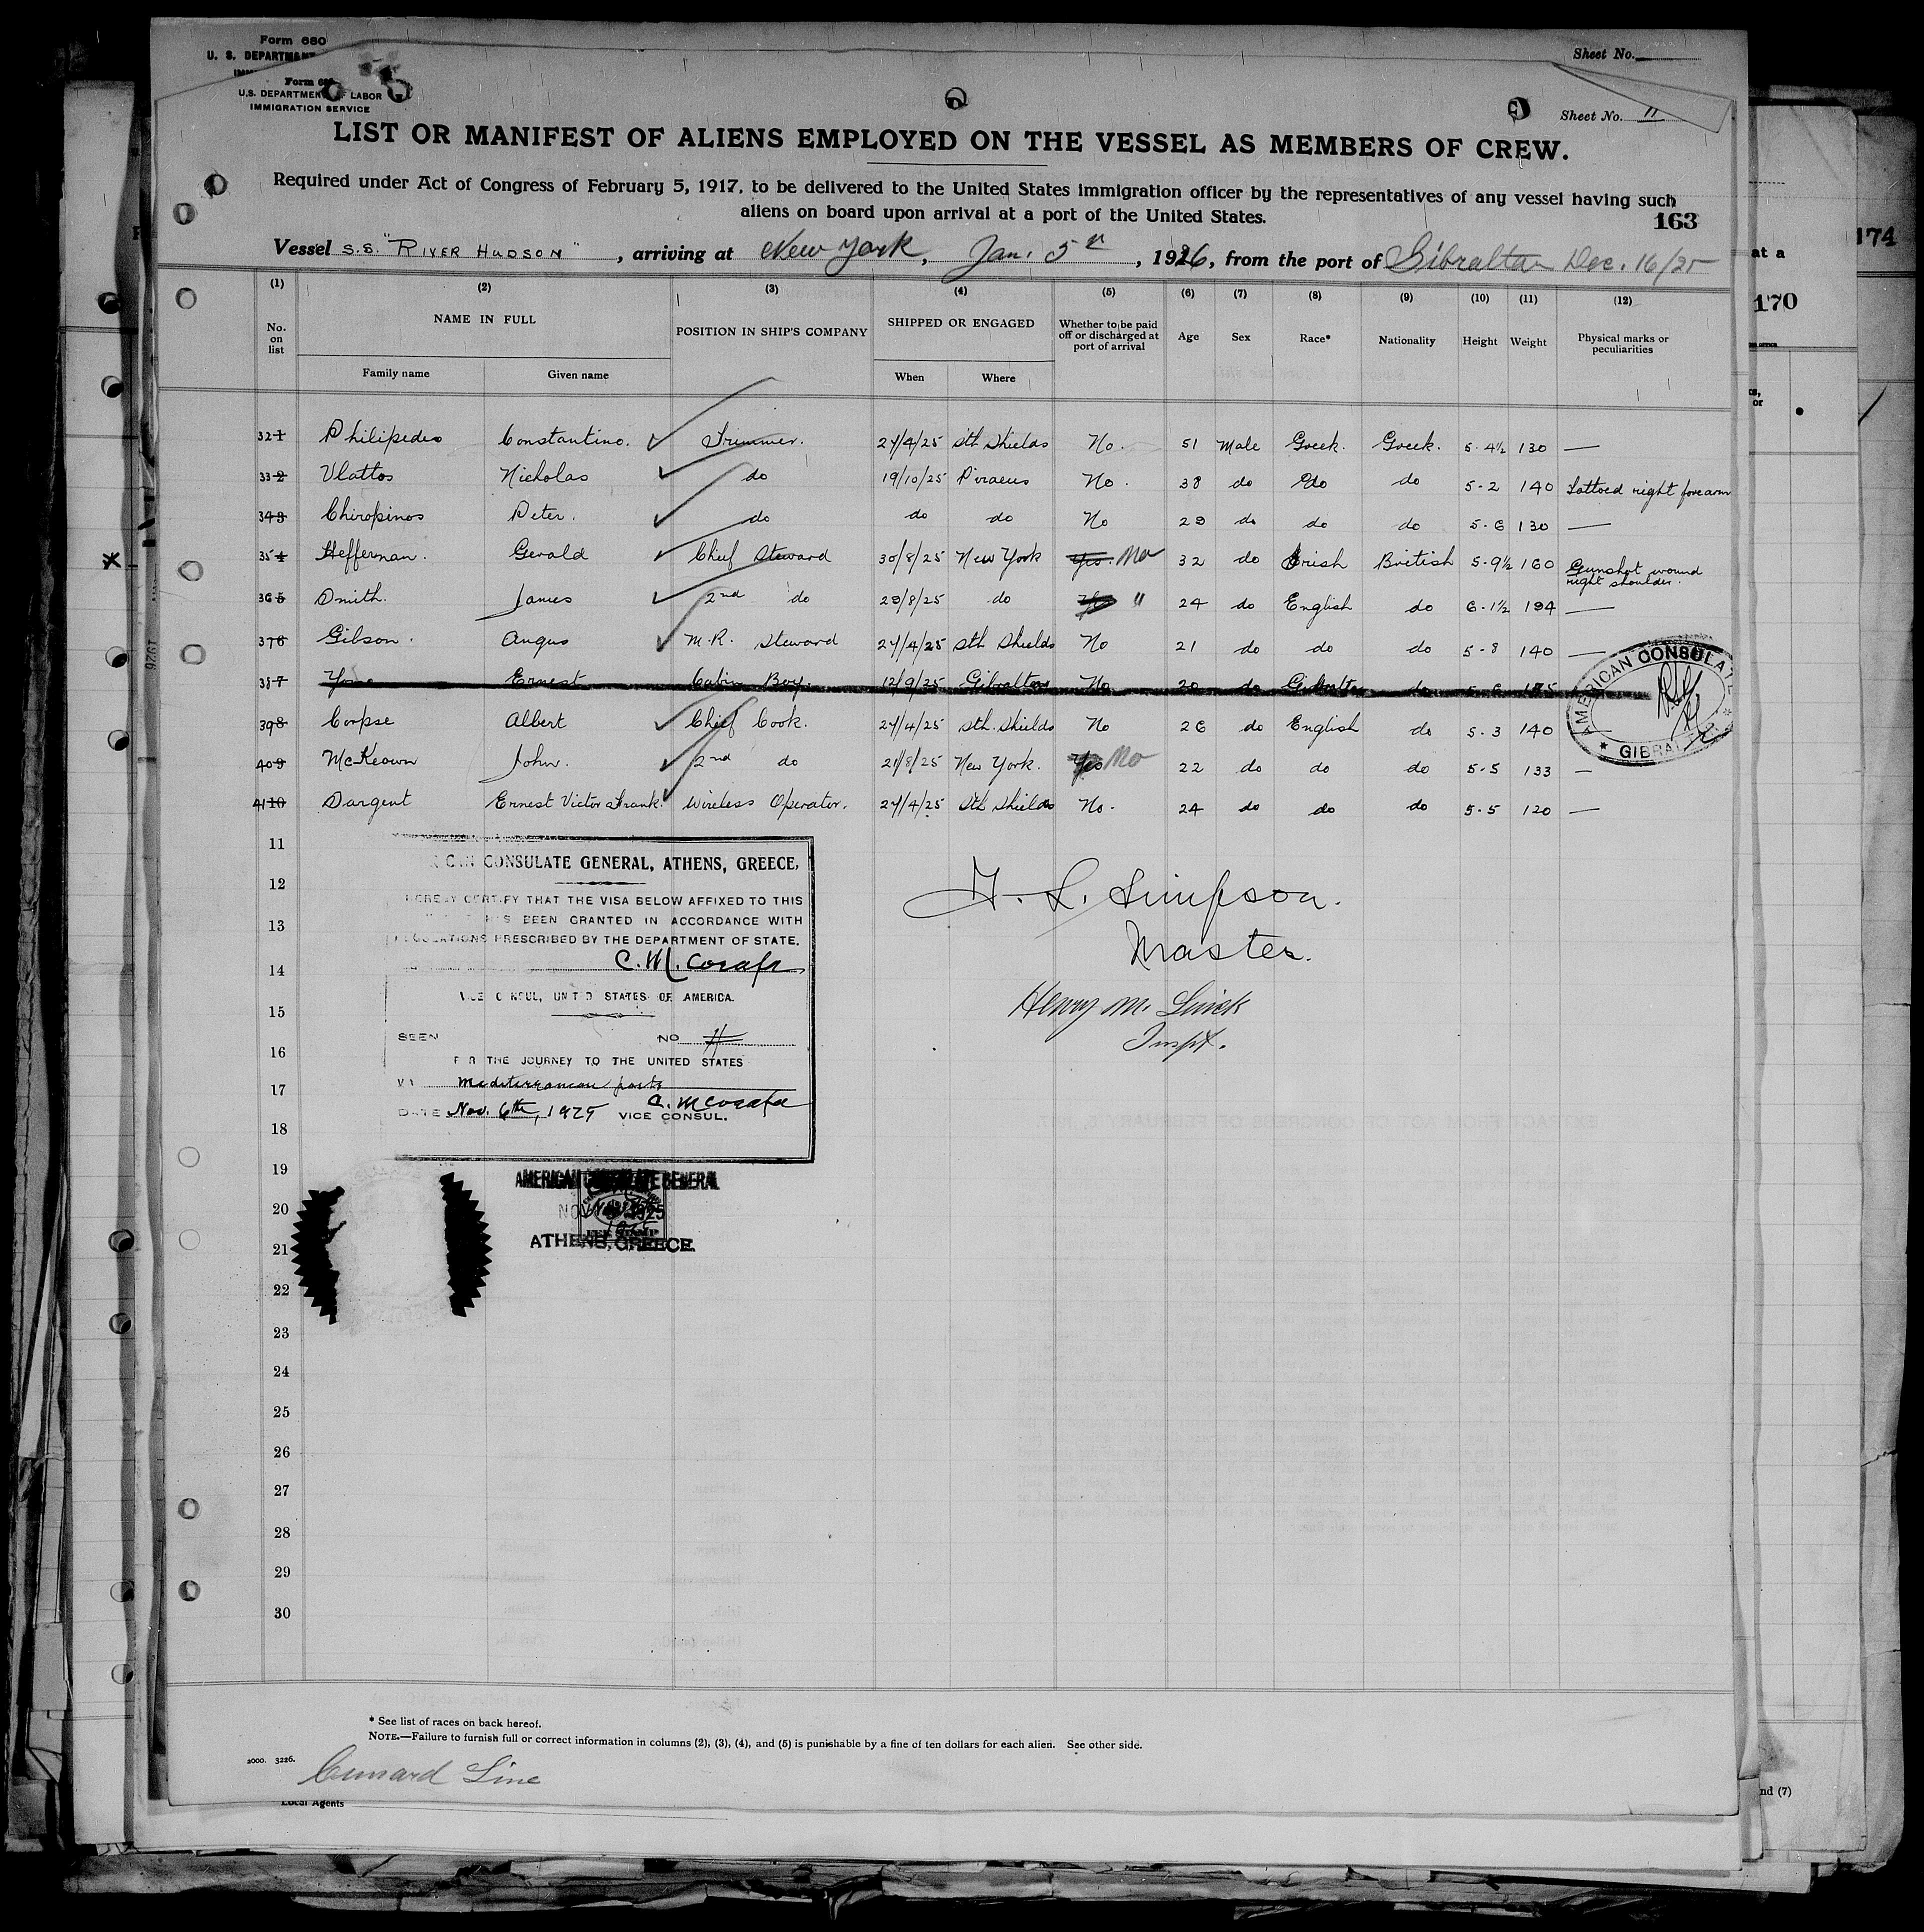 Form 680
U. S. DEPARTMENT
Sheet No.
Form 680
U.S. DEPARTMENT OF LABOR
IMMIGRATION SERVICE
Sheet No. 11
LIST OR MANIFEST OF ALIENS EMPLOYED ON THE VESSEL AS MEMBERS OF CREW.
Required under Act of Congress of February 5, 1917, to be delivered to the United States immigration officer by the representatives of any vessel having such
aliens on board upon arrival at a port of the United States.
163
174
Vessel S.S. "RIVER HUDSON", arriving at New York, Jan. 5th, 1926, from the port of Gibraltar Dec. 16/25
at a
170
(1) (2) (3) (4) (5) (6) (7) (8) (9) (10) (11) (12)
No. on list NAME IN FULL POSITION IN SHIP'S COMPANY SHIPPED OR ENGAGED Whether to be paid off or discharged at port of arrival Age Sex Race* Nationality Height Weight Physical marks or peculiarities
Family name Given name When Where
32 1 Philipedes Constantino. Trimmer. 24/4/25 Sth Shields No. 51 Male Greek. Greek. 5-4½ 130 —
33 2 Vlattos Nicholas do 19/10/25 Piraeus No. 38 do do do 5-2 140 Tattoed right forearm
34 3 Chiropinos Peter. do do do No 29 do do do 5-6 130 —
35 4 Heffernan. Gerald Chief Steward 30/8/25 New York Yes. No 32 do Irish British 5-9½ 160 Gunshot wound right shoulder.
36 5 Smith. James 2nd do 29/8/25 do " 24 do English do 6-1½ 194 —
37 6 Gibson. Angus M.R. Steward 24/4/25 Sth Shields No 21 do do do 5-8 140 —
38 7 Ernest Cabin Boy. 12/9/25 Gibraltar No 20 do Gibraltar do 5-6
39 8 Corpse Albert Chief Cook. 24/4/25 Sth. Shields No 26 do English do 5-3 140
40 9 McKeown John. 2nd do 21/8/25 New York. Yes No 22 do do do 5-5 133 —
41 10 Sargent Ernest Victor Frank. Wireless Operator. 24/4/25 Sth Shields No. 24 do do do 5-5 120 —
AMERICAN CONSULATE
GIBRALTAR
11
CAN CONSULATE GENERAL, ATHENS, GREECE,
12
HEREBY CERTIFY THAT THE VISA BELOW AFFIXED TO THIS
HAS BEEN GRANTED IN ACCORDANCE WITH
13
REGULATIONS PRESCRIBED BY THE DEPARTMENT OF STATE.
14
VICE CONSUL, UNITED STATES OF AMERICA.
15
SEEN NO
16
FOR THE JOURNEY TO THE UNITED STATES
17
VIA Mediterranean ports
DATE Nov. 6th, 1925 VICE CONSUL.
18
Simpson.
Master.
Henry M.
Inspt.
19
AMERICAN CONSULATE GENERAL
20
NOV 1925
21
ATHENS, GREECE.
22
23
24
25
26
27
28
29
30
* See list of races on back hereof.
NOTE.—Failure to furnish full or correct information in columns (2), (3), (4), and (5) is punishable by a fine of ten dollars for each alien. See other side.
2000. 3226.
Cunard Line
Local Agents
nd (7)